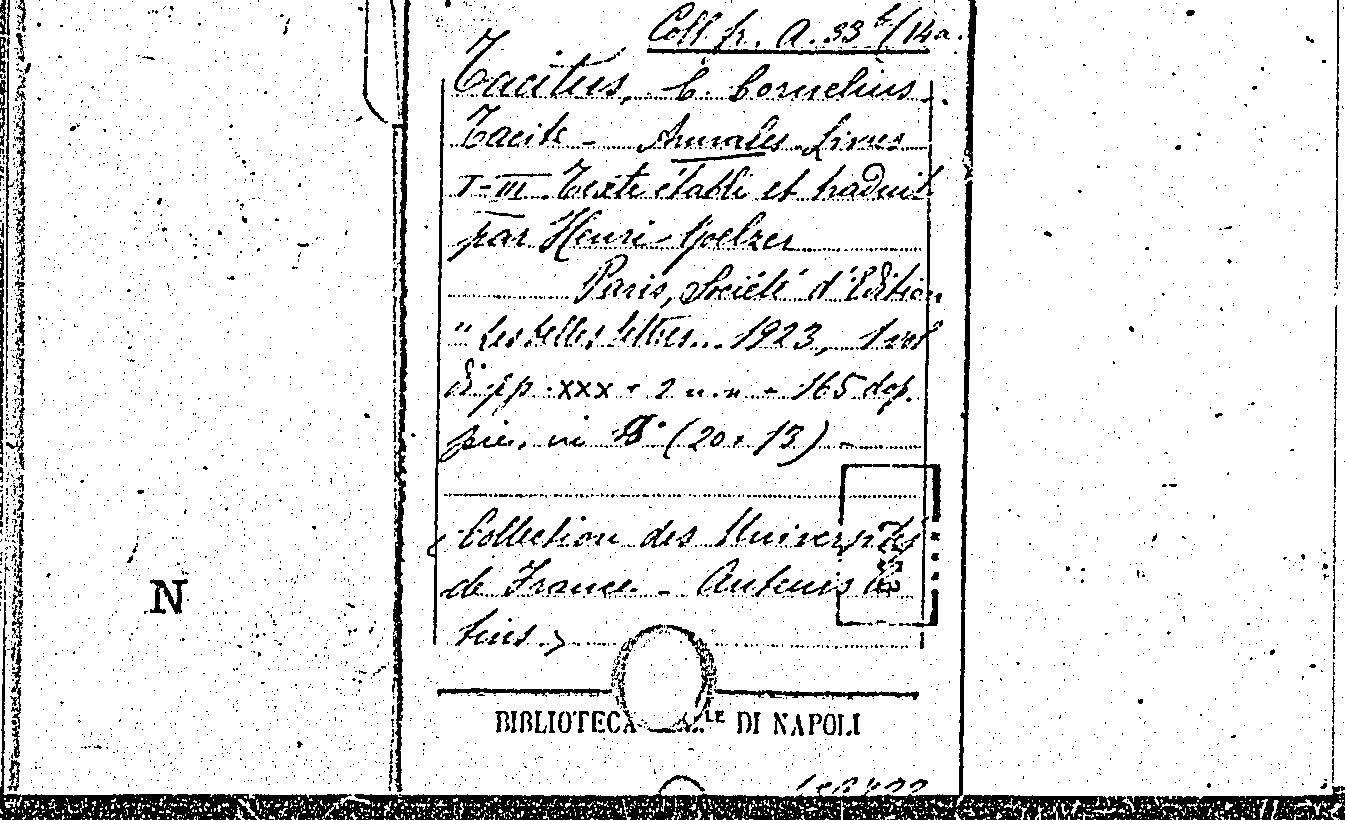 Coll. fr. A. 33 b/14a.
Tacitus, C. Cornelius.
Tacite - Annales. Livres
I-III. Texte établi et traduit
par Henri Goelzer
Paris, Société d'Edition
"Les belles lettres... 1923, 1 vol
di pp. XXX + 2 n.n + 165 dop.
pie. in 8° (20 × 13) -
(Collection des Universités
de France. - Auteurs la
tins.)
BIBLIOTECA LE DI NAPOLI
N